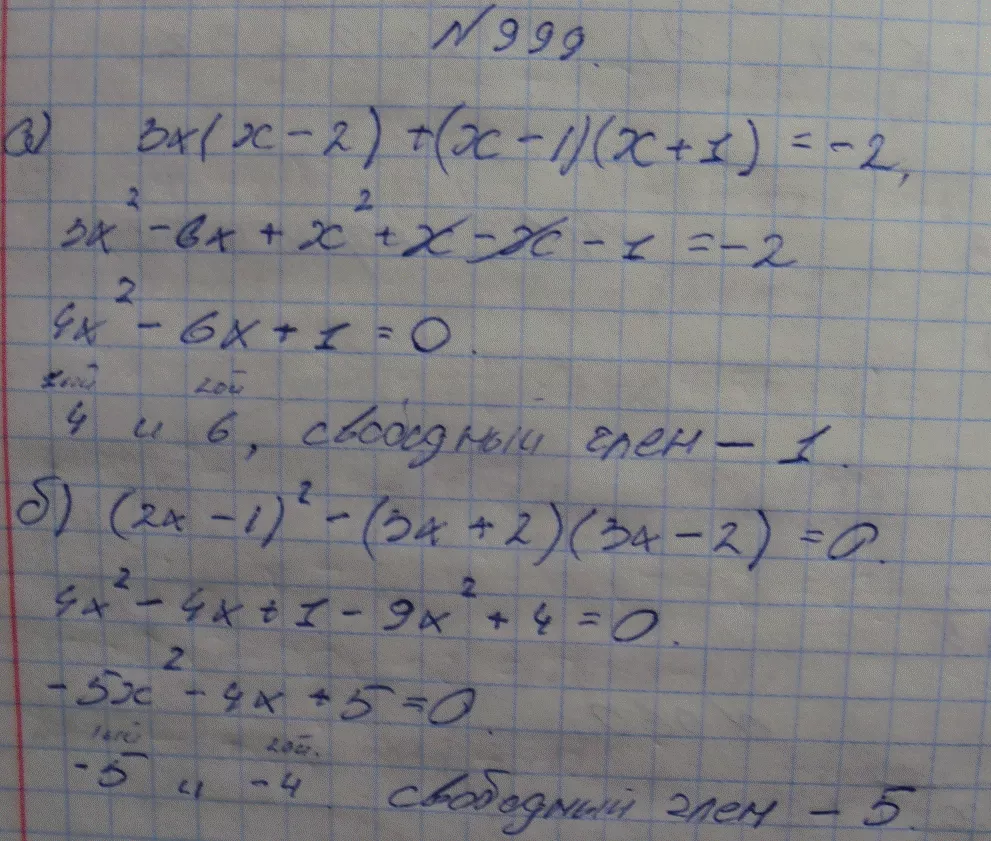 № 999.
а) 3x(x - 2) + (x - 1)(x + 1) = -2,
3x² - 6x + x² + x - x - 1 = -2
4x² - 6x + 1 = 0.
1ый 2ой
4 и 6, свободный член - 1.
б) (2x - 1)² - (3x + 2)(3x - 2) = 0.
4x² - 4x + 1 - 9x² + 4 = 0.
-5x² - 4x + 5 = 0.
1ый 2ой.
-5 и -4. свободный член - 5.